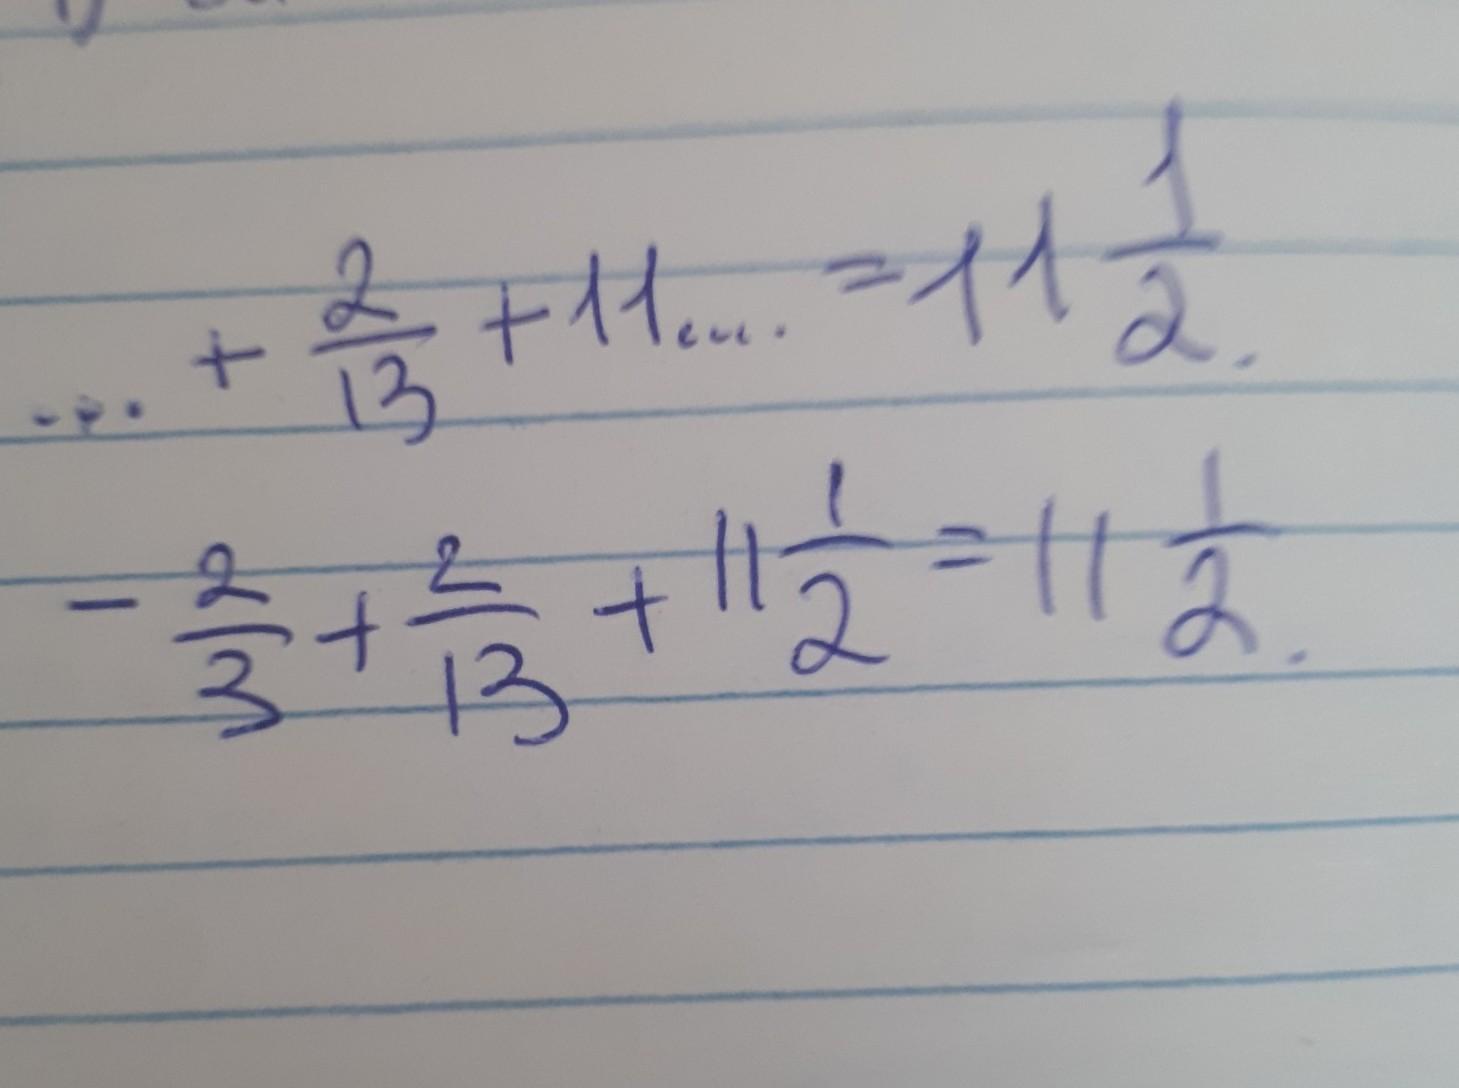 ... + 2/13 + 11.... = 11 1/2.
- 2/3 + 2/13 + 11 1/2 = 11 1/2.